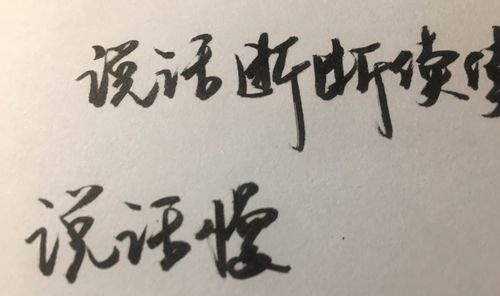 说话断断续续
说话慢